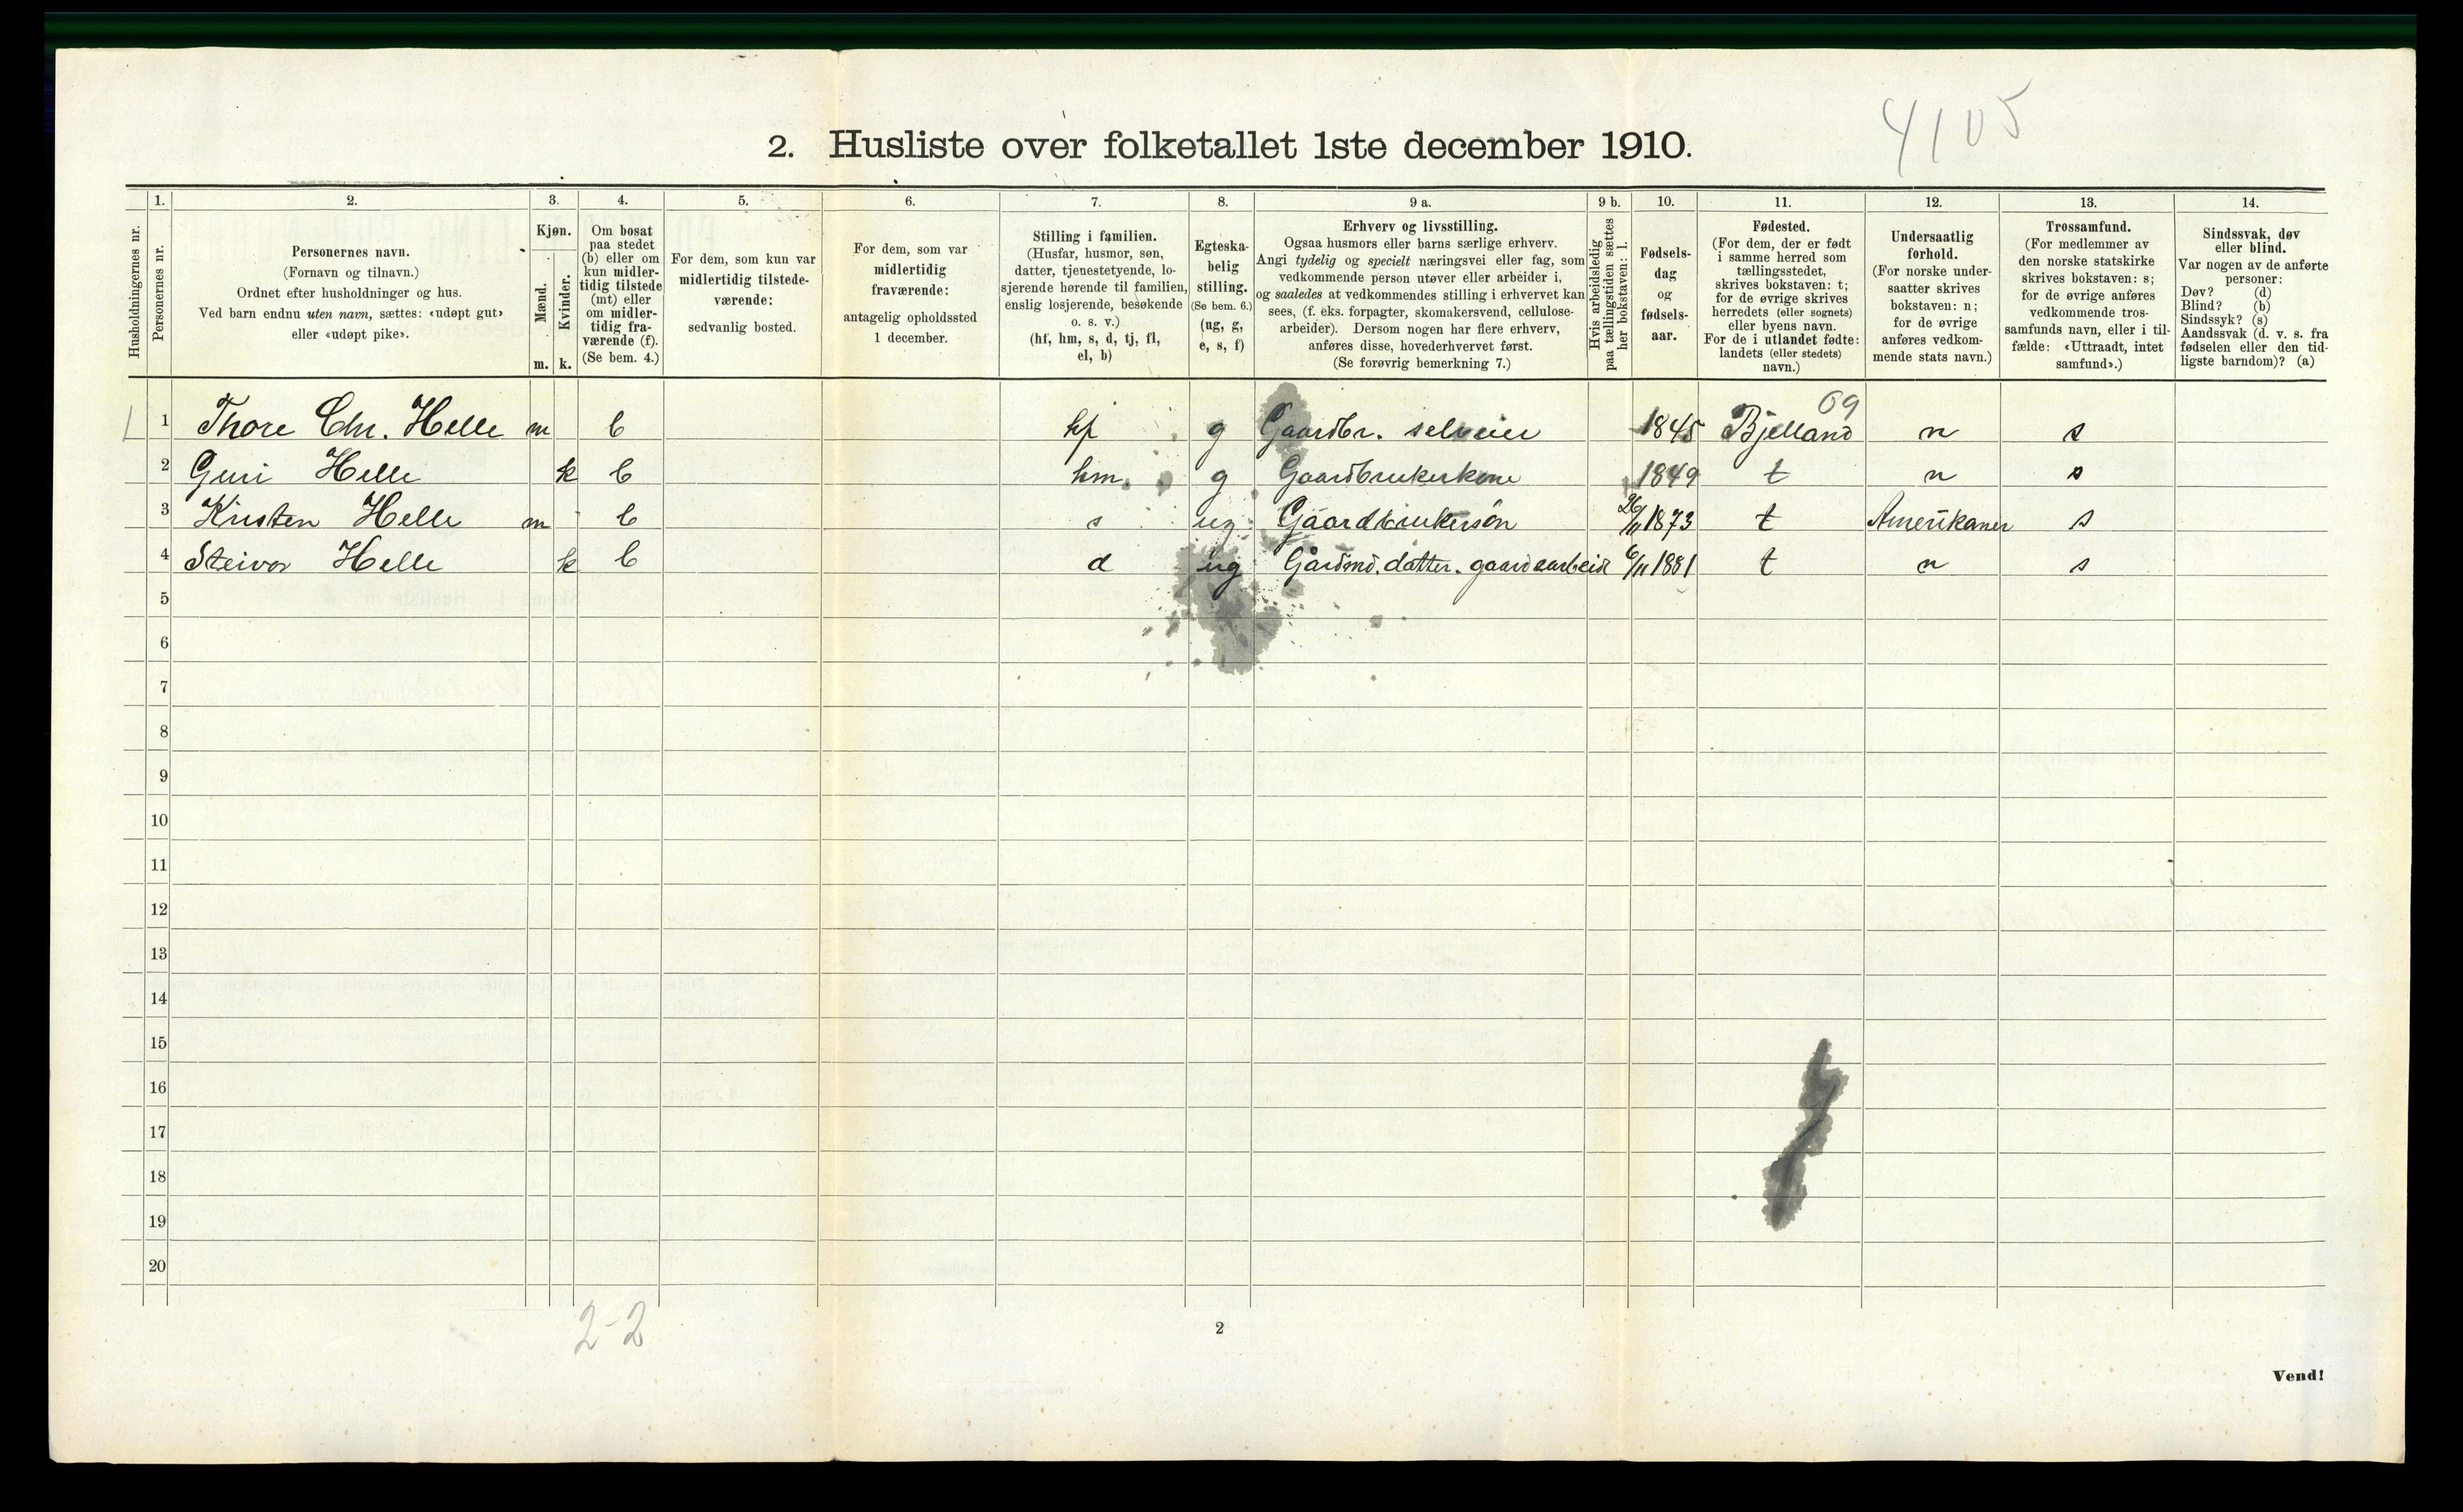 4105
2. Husliste over folketallet 1ste december 1910.
Husholdningernes nr.
1.
Personernes nr.
2.
Personernes navn.
(Fornavn og tilnavn.)
Ordnet efter husholdninger og hus.
Ved barn endnu uten navn, sættes: «udøpt gut»
eller «udøpt pike».
3.
Kjøn.
Mænd.
Kvinder.
m. k.
4.
Om bosat
paa stedet
(b) eller om
kun midler-
tidig tilstede
(mt) eller
om midler-
tidig fra-
værende (f).
(Se bem. 4.)
5.
For dem, som kun var
midlertidig tilstede-
værende:
sedvanlig bosted.
6.
For dem, som var
midlertidig
fraværende:
antagelig opholdssted
1 december.
7.
Stilling i familien.
(Husfar, husmor, søn,
datter, tjenestetyende, lo-
sjerende hørende til familien,
enslig losjerende, besøkende
o. s. v.)
(hf, hm, s, d, tj, fl,
el, b)
8.
Egteska-
belig
stilling.
(Se bem. 6.)
(ug, g,
e, s, f)
9 a.
Erhverv og livsstilling.
Ogsaa husmors eller barns særlige erhverv.
Angi tydelig og specielt næringsvei eller fag, som
vedkommende person utøver eller arbeider i,
og saaledes at vedkommendes stilling i erhvervet kan
sees, (f. eks. forpagter, skomakersvend, cellulose-
arbeider). Dersom nogen har flere erhverv,
anføres disse, hovederhvervet først.
(Se forøvrig bemerkning 7.)
9 b.
Hvis arbeidsledig
paa tællingstiden sættes
her bokstaven: l.
10.
Fødsels-
dag
og
fødsels-
aar.
11.
Fødested.
(For dem, der er født
i samme herred som
tællingsstedet,
skrives bokstaven: t;
for de øvrige skrives
herredets (eller sognets)
eller byens navn.
For de i utlandet fødte:
landets (eller stedets)
navn.)
12.
Undersaatlig
forhold.
(For norske under-
saatter skrives
bokstaven: n;
for de øvrige
anføres vedkom-
mende stats navn.)
13.
Trossamfund.
(For medlemmer av
den norske statskirke
skrives bokstaven: s;
for de øvrige anføres
vedkommende tros-
samfunds navn, eller i til-
fælde: «Uttraadt, intet
samfund».)
14.
Sindssvak, døv
eller blind.
Var nogen av de anførte
personer:
Døv? (d)
Blind? (b)
Sindssyk? (s)
Aandssvak (d. v. s. fra
fødselen eller den tid-
ligste barndom)? (a)
69
1 1 Thore Chr. Helle m b hf g Gaardbr. selveier 1845 Bjelland n s
2 Guri Helle k b hm. g Gaardbrukerkone 1849 t n s
3 Kristen Helle m b s ug Gaardbrukersøn 26/11 1873 t Amerikaner s
4 Steivor Helle k b d ug Gårdmd. datter. gaardsarbeide 6/11 1881 t n s
5
6
7
8
9
10
11
12
13
14
15
16
17
18
19
20
2-2
2
Vend!